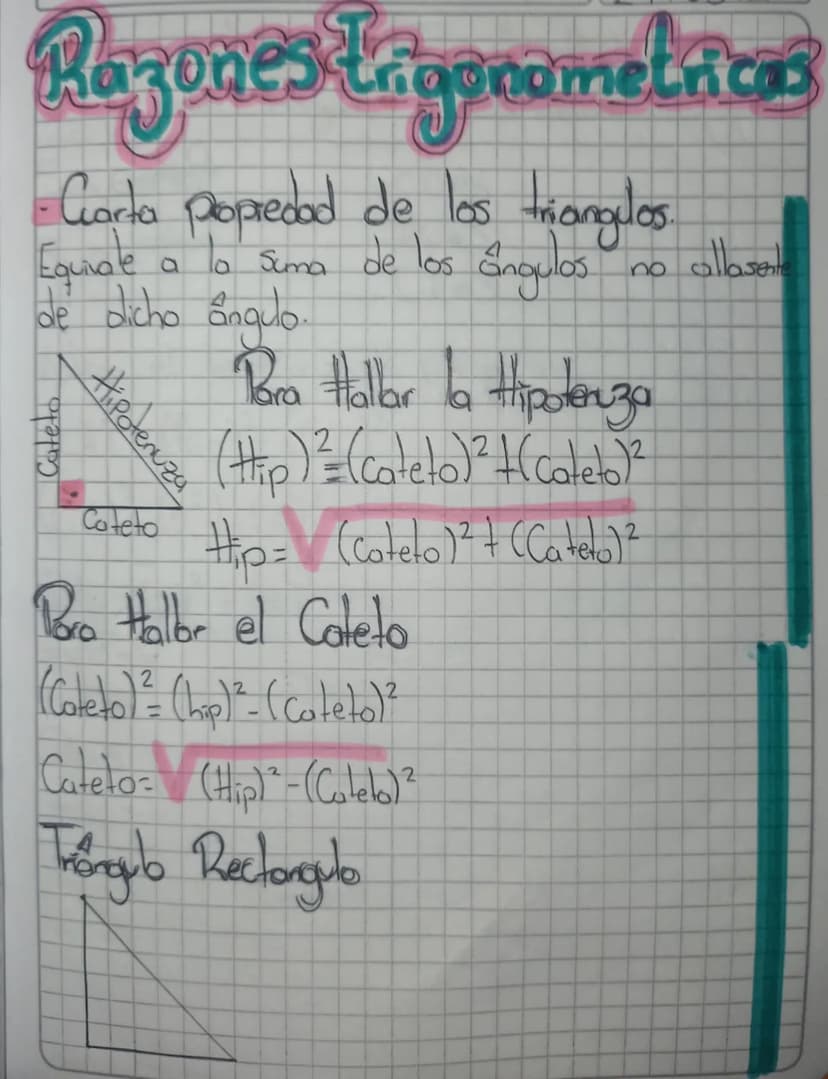 Razones trigonometricas
- Cuarta propiedad de los triangulos.
Equivale a la suma de los ángulos no allasente
de dicho ángulo.
Cateto
Hipotenuza
Cateto
Para Hallar la Hipotenuza
(Hip)² = (cateto)² + (cateto)²
Hip = √(cateto)² + (Cateto)²
Para Hallar el Cateto
(Cateto)² = (hip)² - (cateto)²
Cateto = √(Hip)² - (Cateto)²
Triángulo Rectangulo